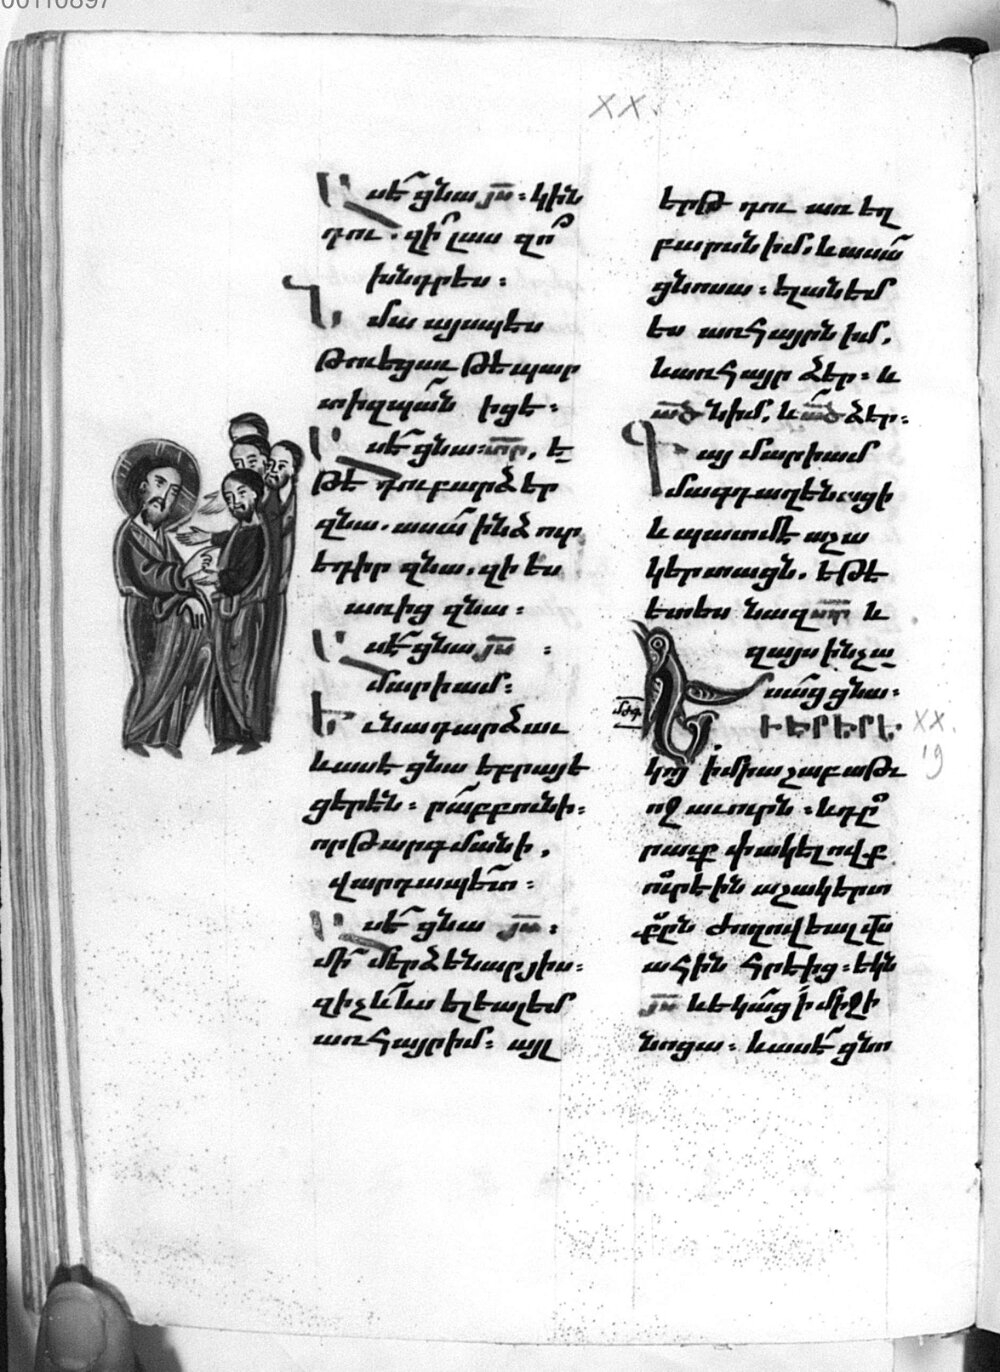 00110897
XX.
Ասէ ցնա յս : կին
դու . զի՞ լաս զո՞
խնդրես :
Նմա այսպէս
թուեցաւ թէ պար
տիզպան իցէ :
Ասէ ցնա : տր , ե
թէ դու բարձեր
զնա . ասա ինձ ուր
եդիր զնա . զի ես
առից զնա :
Ասէ ցնա յս :
մարիամ :
Եւ նա դարձաւ
և ասէ ցնա եբրայե
ցերէն : րաբբունի :
որ թարգմանի ,
վարդապետ :
Ասէ ցնա յս :
մի՛ մերձենար յիս :
զի չև ևս ելեալ եմ
առ հայր իմ : այլ
երթ դու առ եղ
բարսն իմ . և ասա
ցնոսա : ելանեմ
ես առ հայրն իմ .
և առ հայր ձեր : և
ած ն իմ . և ած ձեր :
Գայ մարիամ
մագդաղենացի
և պատմէ աշա
կերտացն . եթէ
ետես նա զտր և
զայս ինչ ա
սաց ցնա :
ԵՒ ԷՐ ԵՐԵ
կոյ ի միաշաբաթւ
ոջ աւուրն : և դը
րաւք փակելովք
ուր էին աշակերտ
քըն ժողովեալ վս
ահին հրէից : եկն
յս և եկաց ի միջի
նոցա : և ասէ ցնո
XX.
19